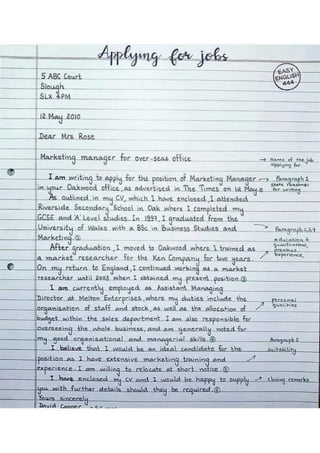 Applying for jobs
EASY
ENGLISH
444
5 ABC Court
Slough
SLX 4PM
12 May 2010
Dear Mrs Rose
Marketing manager for over-seas office → Name of the job
applying for
I am writing to apply for the position of Marketing Manager → Paragraph 1
in your Oakwood office, as advertised in The Times on 12 May. state reasons
for writing
As outlined in my CV, which I have enclosed, I attended
Riverside Secondary School in Oak where I completed my
GCSE and 'A' Level studies. In 1991, I graduated from the
University of Wales with a BSc in Business Studies and Paragraph 2,3,4.
Marketing. ②
education &
qualifications,
previous
After graduation, I moved to Oakwood where I trained as
a market researcher for the Ken Company for two years. experience,
On my return to England, I continued working as a market
researcher until 2003 when I obtained my present position. ③
I am currently employed as Assistant Managing
Director at Melton Enterprises, where my duties include the personal
organisation of staff and stock, as well as the allocation of qualities
budget within the sales department. I am also responsible for
overseeing the whole business, and am generally noted for
my good organisational and managerial skills. ④ Paragraph 5
I believe that I would be an ideal candidate for the Suitability
position as I have extensive marketing training and
experience. I am willing to relocate at short notice. ⑤
I have enclosed my CV and I would be happy to supply → closing remarks
you with further details should they be required. ⑥
Yours sincerely
David Cooper